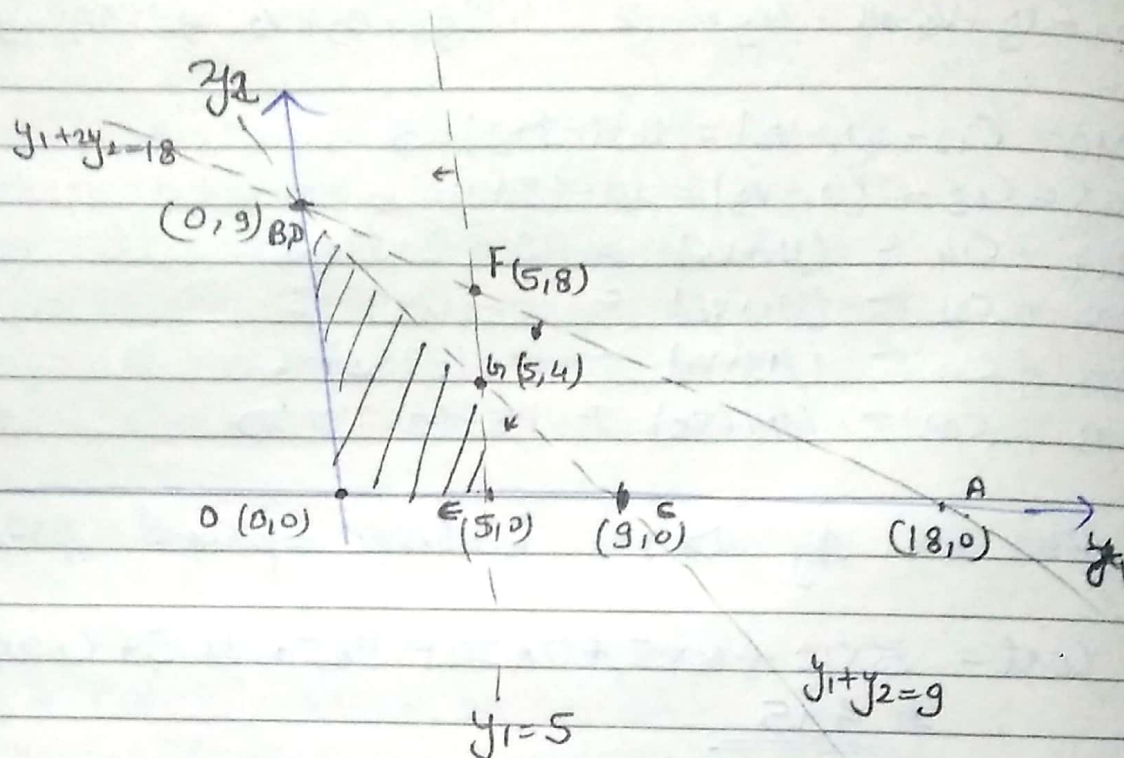 y2
y1+2y2=18
(0,9) B,D
F(5,8)
G(5,4)
O (0,0)
E(5,0)
(9,0) C
A
(18,0)
y1
y1+y2=9
y1=5